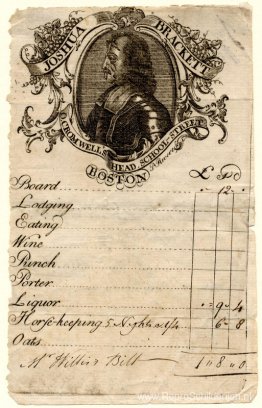 JOSHUA BRACKETT
O. CROMWELLS HEAD SCHOOL STREET
BOSTON
£ S d
Board 12
Lodging
Eating
Wine
Punch
Porter
Liquor 9 4
Horse keeping 5 Nights a 1/4 6 8
Oats
Mr Bill 1 8 0